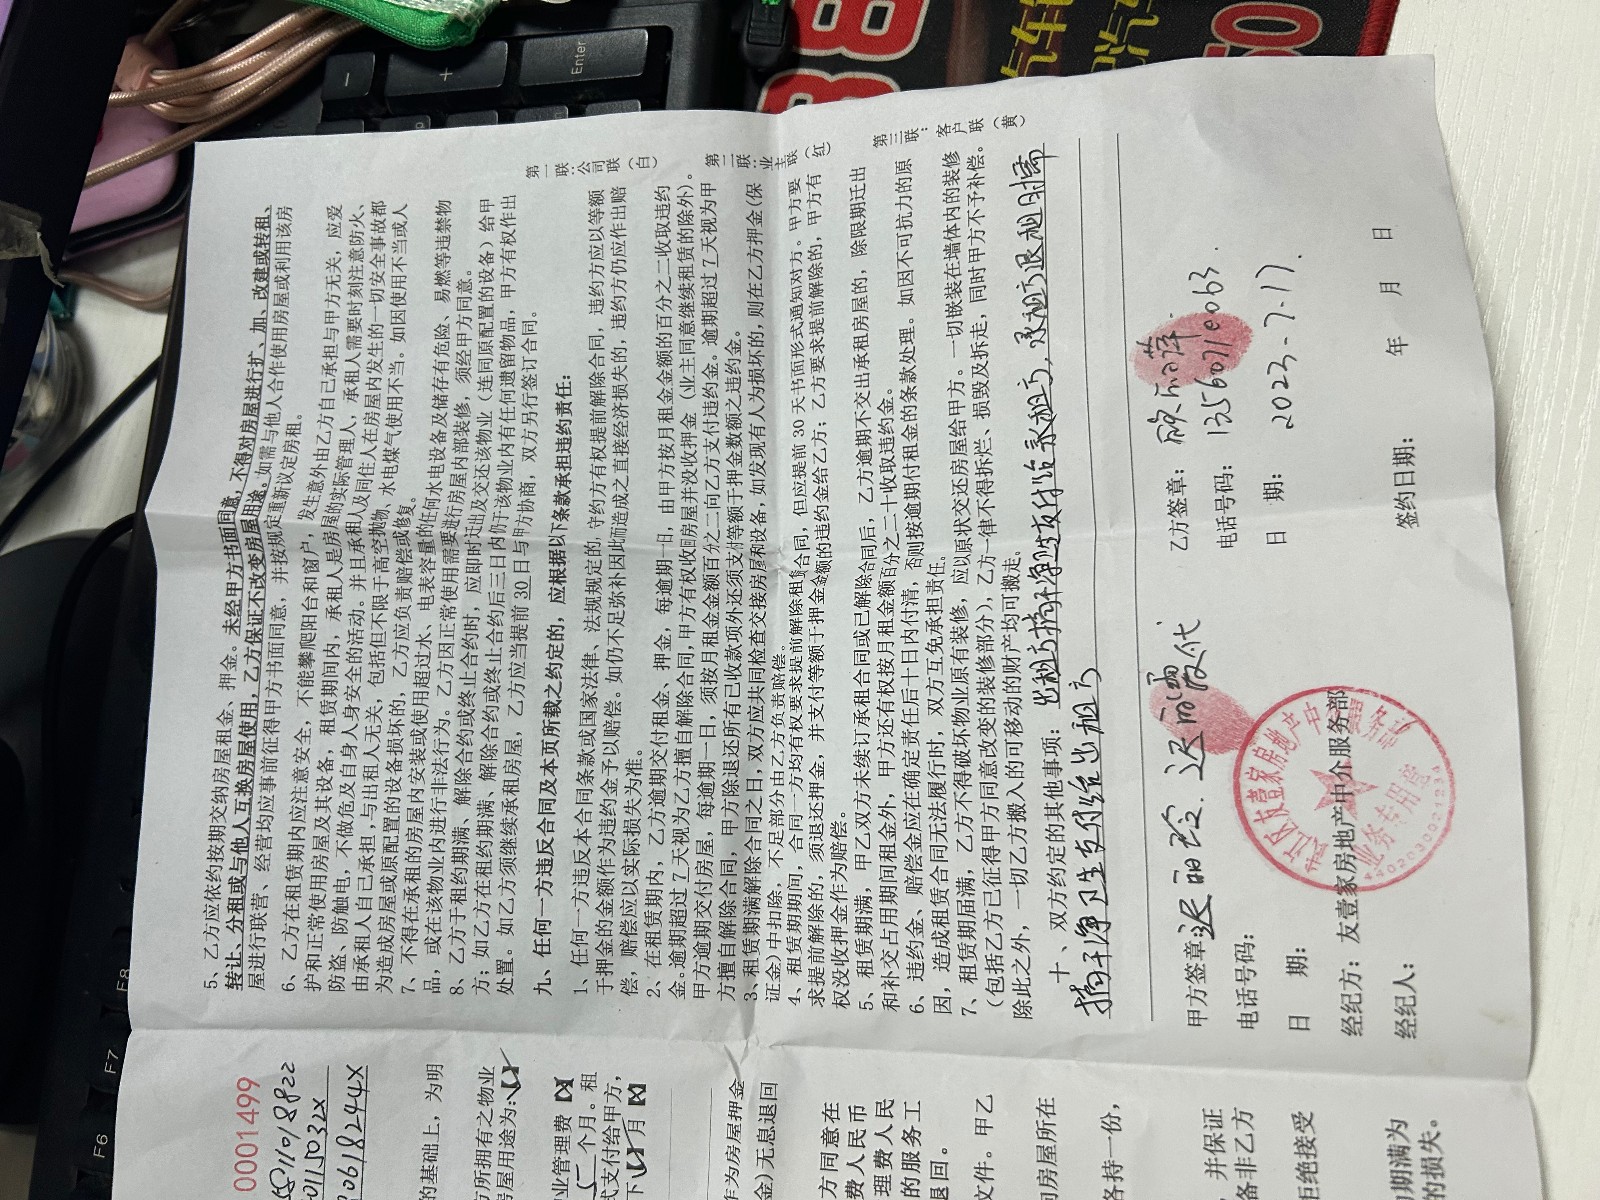 5、乙方应依约按期交纳房屋租金、押金。未经甲方书面同意，不得对房屋进行扩、加、改建或转租、
转让、分租或与他人互换房屋使用，乙方保证不改变房屋用途。如需与他人合作使用房屋或利用该房
屋进行联营、经营均应事前征得甲方书面同意，并按规定重新议定房租。
6、乙方在租赁期内应注意安全，不能攀爬阳台和窗户，发生意外由乙方自己承担与甲方无关，应爱
护和正常使用房屋及其设备，租赁期间内，承租人是房屋的实际管理人，承租人需要时刻注意防火、
防盗、防触电，不做危及自身人身安全的活动。并且承租人及同住人在房屋内发生的一切安全事故都
由承租人自己承担，与出租人无关，包括但不限于高空抛物、水电煤气使用不当。如因使用不当或人
为造成房屋或原配置的设备损坏的，乙方应负责赔偿或修复。
7、不得在承租的房屋内安装或使用超过水、电表容量的任何水电设备及储存有危险、易燃等违禁物
品，或在该物业内进行非法行为。乙方因正常使用需要进行房屋内部装修，须经甲方同意。
8、乙方于租约期满、解除合约或终止合约时，应即时迁出及交还该物业（连同原配置的设备）给甲
方；如乙方在租约期满、解除合约或终止合约后三日内仍于该物业内有任何遗留物品，甲方有权作出
处置。如乙方须继续承租房屋，乙方应当提前 30 日与甲方协商，双方另行签订合同。
九、任何一方违反合同及本页所载之约定的，应根据以下条款承担违约责任：
1、任何一方违反本合同条款或国家法律、法规规定的，守约方有权提前解除合同，违约方应以等额
于押金的金额作为违约金予以赔偿。如仍不足弥补因此而造成之直接经济损失的，违约方仍应作出赔
偿，赔偿应以实际损失为准。
2、在租赁期内，乙方逾期交付租金、押金，每逾期一日，由甲方按月租金金额的百分之二收取违约
金。逾期超过 7 天视为乙方擅自解除合同，甲方有权收回房屋并没收押金（业主同意继续租赁的除外）。
甲方逾期交付房屋，每逾期一日，须按月租金金额百分之二向乙方支付违约金。逾期超过 7 天视为甲
方擅自解除合同，甲方除退还所有已收款项外还须支付等额于押金数额之违约金。
3、租赁期满解除合同之日，双方应共同检查交接房屋和设备，如发现有人为损坏的，则在乙方押金（保
证金）中扣除，不足部分由乙方负责赔偿。
4、租赁期期间，合同一方均有权要求提前解除租赁合同，但应提前 30 天书面形式通知对方。甲方要
求提前解除的，须退还押金，并支付等额于押金金额的违约金给乙方；乙方要求提前解除的，甲方有
权没收押金作为赔偿。
5、租赁期满，甲乙双方未续订承租合同或已解除合同后，乙方逾期不交出承租房屋的，除限期迁出
和补交占用期间租金外，甲方还有权按月租金额百分之二十收取违约金。
6、违约金、赔偿金应在确定责任后十日内付清，否则按逾期付租金的条款处理。如因不可抗力的原
因，造成租赁合同无法履行时，双方互免承担责任。
7、租赁期届满，乙方不得破坏物业原有装修，应以原状交还房屋给甲方。一切嵌装在墙体内的装修
（包括乙方已征得甲方同意改变的装修部分），乙方一律不得拆烂、损毁及拆走，同时甲方不予补偿。
除此之外，一切乙方搬入的可移动的财产均可搬走。
十、双方约定的其他事项：出租方搞干净卫生交付给承租方，承租方退租时需
搞干净卫生交付给出租方
甲方签章：迟丽玲 迟丽霞代
电话号码：
日 期：
经纪方：友壹家房地产中介服务部
经纪人：
乙方签章：
电话号码：13560710053
日 期：2023-7-17.
签约日期： 年 月 日
第一联：公司联（白）
第二联：业主联（红）
第三联：客户联（黄）
房地产中介服务部
业务专用章
0001499
的基础上，为明
方所拥有之物业
房屋用途为：
业管理费
个月。租
式支付给甲方，
下 月
作为房屋押金
金）无息退回
方同意在
费人民币
理费人民
的服务工
退回。
文件。甲乙
向房屋所在
各持一份，
，并保证
备非乙方
拒绝接受
期满为
的损失。
Enter
+
-
F6
F7
F8